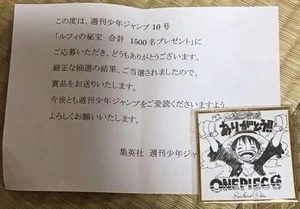 この度は、週刊少年ジャンプ10号
「ルフィの秘宝 合計 1500名プレゼント」に
ご応募いただき、どうもありがとうございます。
厳正な抽選の結果、ご当選されましたので、
賞品をお送りいたします。
今後とも週刊少年ジャンプをご愛読くださいますよう
よろしくお願いいたします。
集英社 週刊少年ジャ
ありがとう!!
ONE PIECE